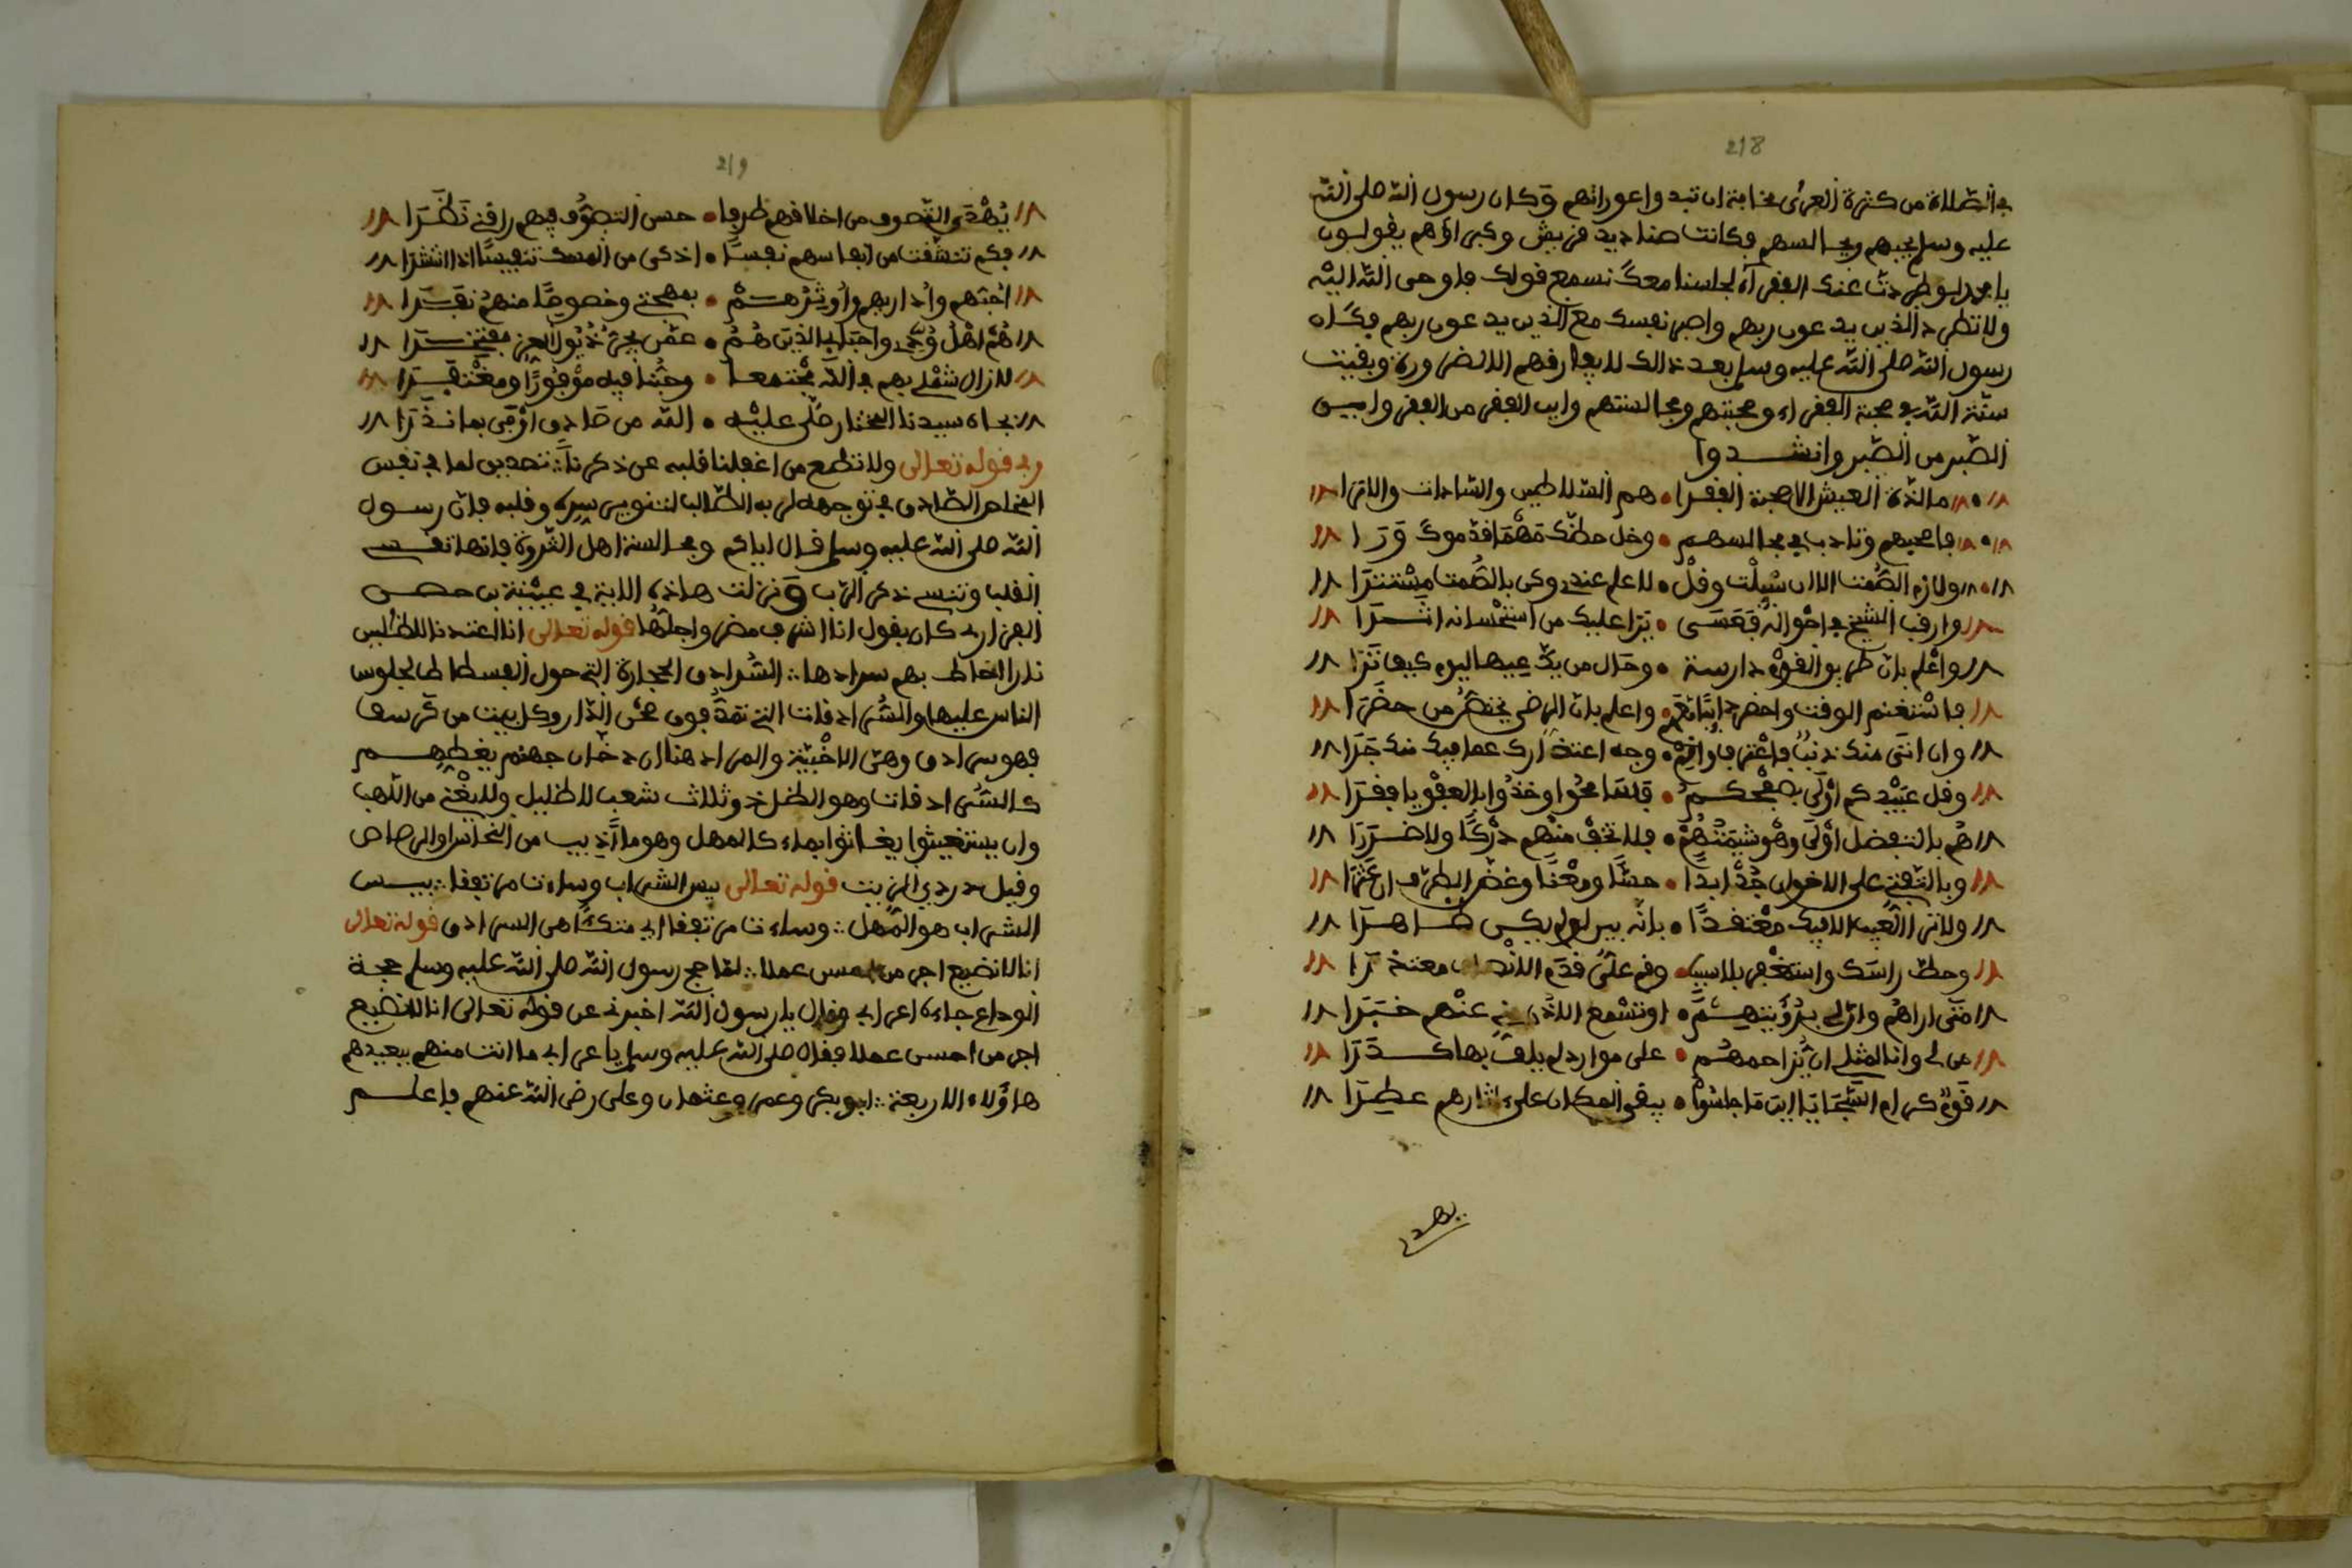 218
في الصلاة من كثرة العرى مخافة ان تبدوا عوراتهم وكان رسول الله صلى الله
عليه وسلم يحبهم ويجالسهم فكانت صناديد قريش وكبراؤهم يقولون
يا محمد لو طردت عنك الفقراء لجلسنا معك نسمع قولك فاوحى الله اليه
ولا تطرد الذين يدعون ربهم واصبر نفسك مع الذين يدعون ربهم فكان
رسول الله صلى الله عليه وسلم بعد ذالك لا يفارقهم الا لضرورة وبقيت
سنة الله في صحبة الفقراء ومحبتهم ومجالستهم واين الفقر من الفقر واين
الصبر من الصبر وانشدوا
ما لذة العيش الا صحبة الفقرا • هم السلاطين والسادات والامرا
فاصحبهم وتادب في مجالسهم • وخل حظك مهما قدموك ورا
ولازم الصمت الا ان سئلت وقل • لا علم عندي وكن بالصمت مستترا
وارقب الشيخ في احواله فعسى • يرا عليك من استحسانه اثرا
واعلم بان طريق القوم دارسة • وحال من يدعيها اليوم كيف ترا
فاستغنم الوقت واحضر دايما معهم • واعلم بان الرضى يختص من حضرا
وان اتى منك ذنب فاعترف واقم • وجه اعتذارك عما فيك منك جرا
وقل عبيدكم اولى بصفحكم • فسامحوا وخذوا بالعفو يا فقرا
هم بالتفضل اولى وهو شيمتهم • فلا تخف منهم دركا ولا ضررا
وبالتفتي على الاخوان جد ابدا • حسا ومعنا وغض الطرف ان عثرا
ولا تر العيب الا فيك معتقدا • بانه بين لو لم يكن ظاهرا
وحط راسك واستغفر بلا سبب • وقم على قدم الانصاف معتذرا
متى اراهم وانى لي برؤيتهم • او تسمع الاذن مني عنهم خبرا
من لي وانا لمثلي ان يزاحمهم • على موارد لم يلف بها كدرا
قوم كرام السجايا اين ما جلسوا • يبقى المكان على اثارهم عطرا
يهدى
219
يهدى التصوف من اخلاقهم طرفا • حسن التصوف فيهم راقني نظرا
فكم تنشقت من انفاسهم نفسا • اذكى من المسك تنفيسا اذا انتشرا
احبهم واداريهم واوثرهم • بمهجتي وخصوصا منهم نفرا
هم اهل ودي واحبابي الذين هم • عمن يجر ذيول العز مفتخرا
لا زال شملي بهم في الله مجتمعا • وجئنا فيه موفورا ومغتفرا
بجاه سيدنا المختار صلى عليه • الله من صادق اوفى بما نذرا
وفي قوله تعالى ولا تطع من اغفلنا قلبه عن ذكرنا تحديس لما في نفس
المخلص الصادق في توجهه لربه الطالب لتنوير سره وقلبه فان رسول
الله صلى الله عليه وسلم قال اياكم ومجالسة اهل الثروة فانها تقسي
القلب وتنسي ذكر الرب ونزلت هاذه الاية في عيينة بن حصن
الفزاري كان يقول انا اشرف مضر واجلها قوله تعالى انا اعتدنا للظلمين
نارا احاط بهم سرادقها السرادق الحجارة التي حول الفسطاط لجلوس
الناس عليها والسرادقات التي تمد فوق صحن الدار وكل بيت من كرسف
فهو سرادق وهي الاخبية والمراد هنا ان دخان جهنم يغطيهم
كالسرادقات وهو الظل ذو ثلاث شعب لا ظليل ولا يغني من اللهب
وان يستغيثوا يغاثوا بماء كالمهل وهو ما اذيب من النحاس او الرصاص
وقيل دردي الزيت قوله تعالى بيس الشراب وساءت مرتفقا بيس
الشراب هو المهل وساءت مرتفقا اي متكئا هي السرادق قوله تعالى
انا لا نضيع اجر من احسن عملا لما حج رسول الله صلى الله عليه وسلم حجة
الوداع جاءه اعرابي وقال يا رسول الله اخبرني عن قوله تعالى انا لا نضيع
اجر من احسن عملا فقال صلى الله عليه وسلم يا عرابي ما انت منهم ببعيد هم
هاؤلاء الاربعة ابو بكر وعمر وعثمان وعلي رضي الله عنهم فاعلم